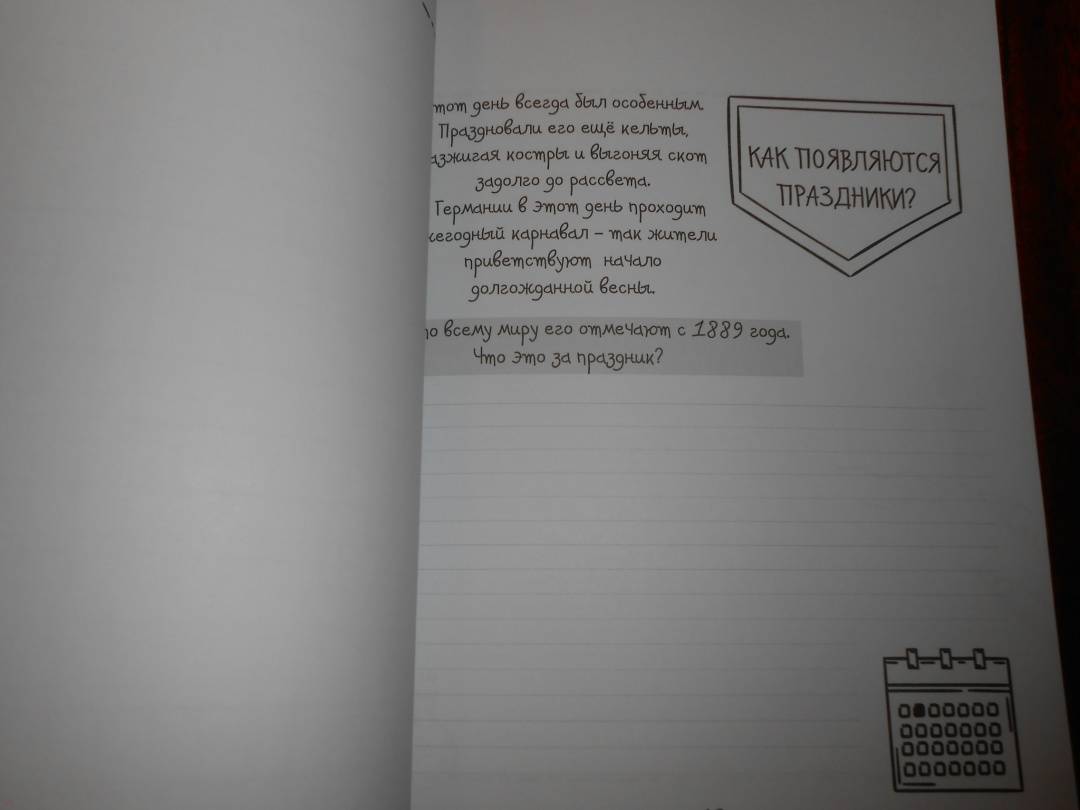 тот день всегда был особенным.
Праздновали его ещё кельты,
азжигая костры и выгоняя скот
задолго до рассвета.
Германии в этот день проходит
жегодный карнавал – так жители
приветствуют начало
долгожданной весны.
по всему миру его отмечают с 1889 года.
Что это за праздник?
КАК ПОЯВЛЯЮТСЯ
ПРАЗДНИКИ?